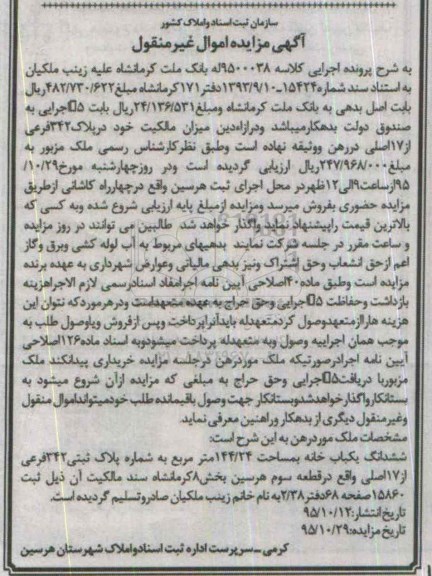 سازمان ثبت اسناد واملاک کشور
آگهی مزایده اموال غیر منقول
به شرح پرونده اجرایی کلاسه ۹۵۰۰۰۳۸له بانک ملت کرمانشاه علیه زینب ملکیان
به استناد سند شماره ۱۵۴۲۴-۱۳۹۳/۹/۱۰دفتر۱۷۱کرمانشاه مبلغ۴۸۲/۷۳۰/۶۲۲ریال
بابت اصل بدهی به بانک ملت کرمانشاه ومبلغ۲۴/۱۳۶/۵۳۱ریال بابت ۵اجرایی به
صندوق دولت بدهکارمیباشد ودرازاءدین میزان مالکیت خود درپلاک۳۴۲فرعی
از۱۷اصلی دررهن ووثیقه نهاده است وطبق نظرکارشناس رسمی ملک مزبور به
مبلغ۲۴۷/۹۶۸/۰۰۰ریال ارزیابی گردیده است ودر روزچهارشنبه مورخ۱۰/۲۹/
۹۵ازساعت۹الی۱۲ظهردر محل اجرای ثبت هرسین واقع درچهارراه کاشانی ازطریق
مزایده حضوری بفروش میرسد ومزایده ازمبلغ پایه ارزیابی شروع شده وبه کسی که
بالاترین قیمت راپیشنهاد نماید واگذار خواهد شد. طالبین می توانند در روز مزایده
و ساعت مقرر در جلسه شرکت نمایند بدهیهای مربوط به آب لوله کشی وبرق وگاز
اعم ازحق انشعاب وحق اشتراک ونیز بدهی مالیاتی وعوارض شهرداری به عهده برنده
مزایده است وطبق ماده۴۰اصلاحی آیین نامه اجرامفاد اسنادرسمی لازم الاجراهزینه
بازداشت وحفاظت ۵اجرایی وحق حراج به عهده متعهداست ودرهرموردکه نتوان این
هزینه هاراازمتعهدوصول کردمتعهدله بایدآنراپرداخت وپس ازفروش ویاوصول طلب به
موجب همان اجراییه وصول وبه متعهدله پرداخت میشودوبه اسناد ماده۱۲۶اصلاحی
آیین نامه اجرادرصورتیکه ملک موردرهن درجلسه مزایده خریداری پیدانکند ملک
مزبوربا دریافت۵اجرایی وحق حراج به مبلغی که مزایده ازآن شروع میشود به
بستانکارواگذارخواهدشدوبستانکار جهت وصول باقیمانده طلب خودمیتوانداموال منقول
وغیرمنقول دیگری از بدهکار وراهنین معرفی نماید.
مشخصات ملک موردرهن به این شرح است:
ششدانگ یکباب خانه بمساحت ۱۴۴/۲۴متر مربع به شماره پلاک ثبتی۳۴۲فرعی
از۱۷اصلی واقع درقطعه سوم هرسین بخش۸کرمانشاه سند مالکیت آن ذیل ثبت
۱۵۸۶۰صفحه ۶۸دفتر۲/۳۸به نام خانم زینب ملکیان صادروتسلیم گردیده است.
تاریخ انتشار:۹۵/۱۰/۱۲
تاریخ مزایده:۹۵/۱۰/۲۹
کرمی-سرپرست اداره ثبت اسنادواملاک شهرستان هرسین